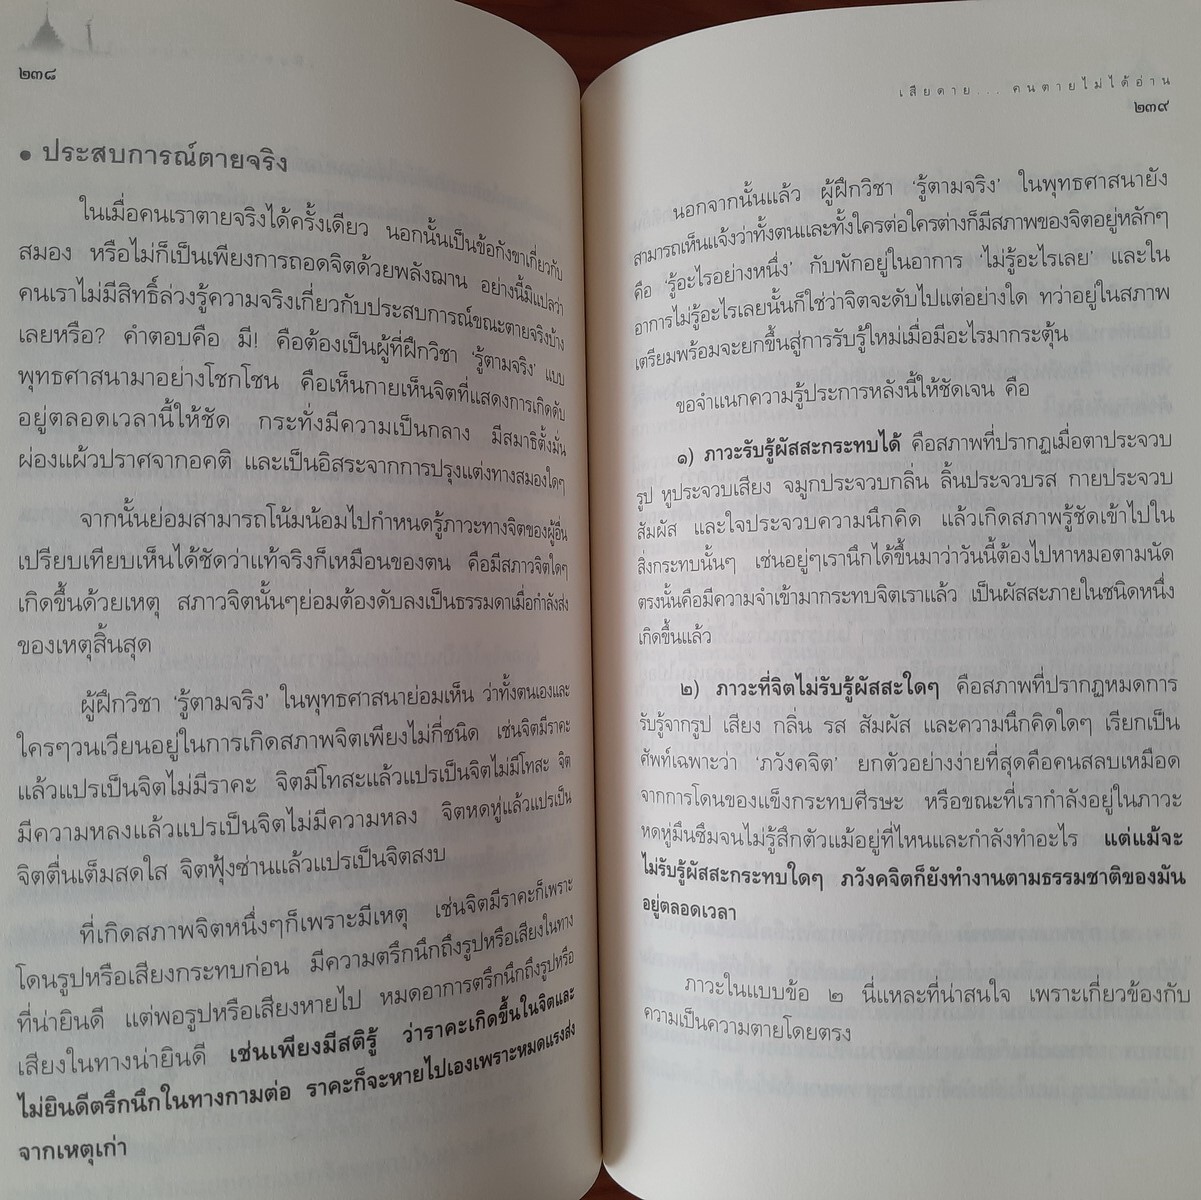 ๒๓๘
• ประสบการณ์ตายจริง
ในเมื่อคนเราตายจริงได้ครั้งเดียว นอกนั้นเป็นข้อกังขาเกี่ยวกับ
สมอง หรือไม่ก็เป็นเพียงการถอดจิตด้วยพลังฌาน อย่างนี้มิแปลว่า
คนเราไม่มีสิทธิ์ล่วงรู้ความจริงเกี่ยวกับประสบการณ์ขณะตายจริงบ้าง
เลยหรือ? คำตอบคือ มี! คือต้องเป็นผู้ที่ฝึกวิชา ‘รู้ตามจริง’ แบบ
พุทธศาสนามาอย่างโชกโชน คือเห็นกายเห็นจิตที่แสดงการเกิดดับ
อยู่ตลอดเวลานี้ให้ชัด กระทั่งมีความเป็นกลาง มีสมาธิตั้งมั่น
ผ่องแผ้วปราศจากอคติ และเป็นอิสระจากการปรุงแต่งทางสมองใดๆ
จากนั้นย่อมสามารถโน้มน้อมไปกำหนดรู้ภาวะทางจิตของผู้อื่น
เปรียบเทียบเห็นได้ชัดว่าแท้จริงก็เหมือนของตน คือมีสภาวจิตใดๆ
เกิดขึ้นด้วยเหตุ สภาวจิตนั้นๆย่อมต้องดับลงเป็นธรรมดาเมื่อกำลังส่ง
ของเหตุสิ้นสุด
ผู้ฝึกวิชา ‘รู้ตามจริง’ ในพุทธศาสนาย่อมเห็น ว่าทั้งตนเองและ
ใครๆวนเวียนอยู่ในการเกิดสภาพจิตเพียงไม่กี่ชนิด เช่นจิตมีราคะ
แล้วแปรเป็นจิตไม่มีราคะ จิตมีโทสะแล้วแปรเป็นจิตไม่มีโทสะ จิต
มีความหลงแล้วแปรเป็นจิตไม่มีความหลง จิตหดหู่แล้วแปรเป็น
จิตตื่นเต็มสดใส จิตฟุ้งซ่านแล้วแปรเป็นจิตสงบ
ที่เกิดสภาพจิตหนึ่งๆก็เพราะมีเหตุ เช่นจิตมีราคะก็เพราะ
โดนรูปหรือเสียงกระทบก่อน มีความตรึกนึกถึงรูปหรือเสียงในทาง
ที่น่ายินดี แต่พอรูปหรือเสียงหายไป หมดอาการตรึกนึกถึงรูปหรือ
เสียงในทางน่ายินดี เช่นเพียงมีสติรู้ ว่าราคะเกิดขึ้นในจิตและ
ไม่ยินดีตรึกนึกในทางกามต่อ ราคะก็จะหายไปเองเพราะหมดแรงส่ง
จากเหตุเก่า
เสียดาย... คนตายไม่ได้อ่าน
๒๓๙
นอกจากนั้นแล้ว ผู้ฝึกวิชา ‘รู้ตามจริง’ ในพุทธศาสนายัง
สามารถเห็นแจ้งว่าทั้งตนและทั้งใครต่อใครต่างก็มีสภาพของจิตอยู่หลักๆ
คือ ‘รู้อะไรอย่างหนึ่ง’ กับพักอยู่ในอาการ ‘ไม่รู้อะไรเลย’ และใน
อาการไม่รู้อะไรเลยนั้นก็ใช่ว่าจิตจะดับไปแต่อย่างใด ทว่าอยู่ในสภาพ
เตรียมพร้อมจะยกขึ้นสู่การรับรู้ใหม่เมื่อมีอะไรมากระตุ้น
ขอจำแนกความรู้ประการหลังนี้ให้ชัดเจน คือ
๑) ภาวะรับรู้ผัสสะกระทบได้ คือสภาพที่ปรากฏเมื่อตาประจวบ
รูป หูประจวบเสียง จมูกประจวบกลิ่น ลิ้นประจวบรส กายประจวบ
สัมผัส และใจประจวบความนึกคิด แล้วเกิดสภาพรู้ชัดเข้าไปใน
สิ่งกระทบนั้นๆ เช่นอยู่ๆเรานึกได้ขึ้นมาว่าวันนี้ต้องไปหาหมอตามนัด
ตรงนั้นคือมีความจำเข้ามากระทบจิตเราแล้ว เป็นผัสสะภายในชนิดหนึ่ง
เกิดขึ้นแล้ว
๒) ภาวะที่จิตไม่รับรู้ผัสสะใดๆ คือสภาพที่ปรากฏหมดการ
รับรู้จากรูป เสียง กลิ่น รส สัมผัส และความนึกคิดใดๆ เรียกเป็น
ศัพท์เฉพาะว่า ‘ภวังคจิต’ ยกตัวอย่างง่ายที่สุดคือคนสลบเหมือด
จากการโดนของแข็งกระทบศีรษะ หรือขณะที่เรากำลังอยู่ในภาวะ
หดหู่มึนซึมจนไม่รู้สึกตัวแม้อยู่ที่ไหนและกำลังทำอะไร แต่แม้จะ
ไม่รับรู้ผัสสะกระทบใดๆ ภวังคจิตก็ยังทำงานตามธรรมชาติของมัน
อยู่ตลอดเวลา
ภาวะในแบบข้อ ๒ นี่แหละที่น่าสนใจ เพราะเกี่ยวข้องกับ
ความเป็นความตายโดยตรง